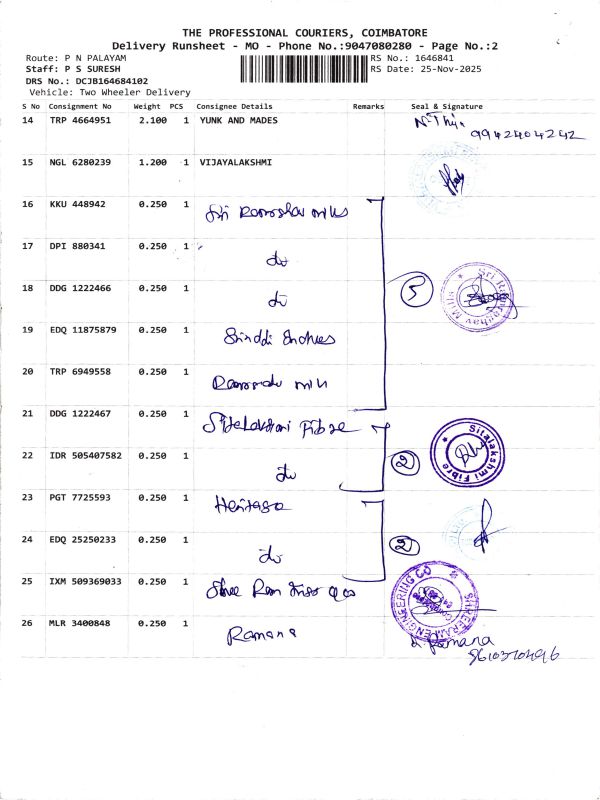 THE PROFESSIONAL COURIERS, COIMBATORE
Delivery Runsheet - MO - Phone No.:9047080280 - Page No.:2
Route: P N PALAYAM
RS No.: 1646841
Staff: P S SURESH
RS Date: 25-Nov-2025
DRS No.: DCJB164684102
Vehicle: Two Wheeler Delivery
S No Consignment No Weight PCS Consignee Details Remarks Seal & Signature
14 TRP 4664951 2.100 1 YUNK AND MADES
9942404242
15 NGL 6280239 1.200 1 VIJAYALAKSHMI
16 KKU 448942 0.250 1 Sri
17 DPI 880341 0.250 1 do
18 DDG 1222466 0.250 1 do
5
Sri Ramraghav Mills
19 EDQ 11875879 0.250 1
20 TRP 6949558 0.250 1
21 DDG 1222467 0.250 1 Sitalakshmi Fibre
22 IDR 505407582 0.250 1 do
2
Sitalakshmi Fibre
23 PGT 7725593 0.250 1 Heritage
24 EDQ 25250233 0.250 1 do
2
25 IXM 509369033 0.250 1 Shree Ram
SHREERAM ENGINEERING CO
26 MLR 3400848 0.250 1 Ramana
Ramana